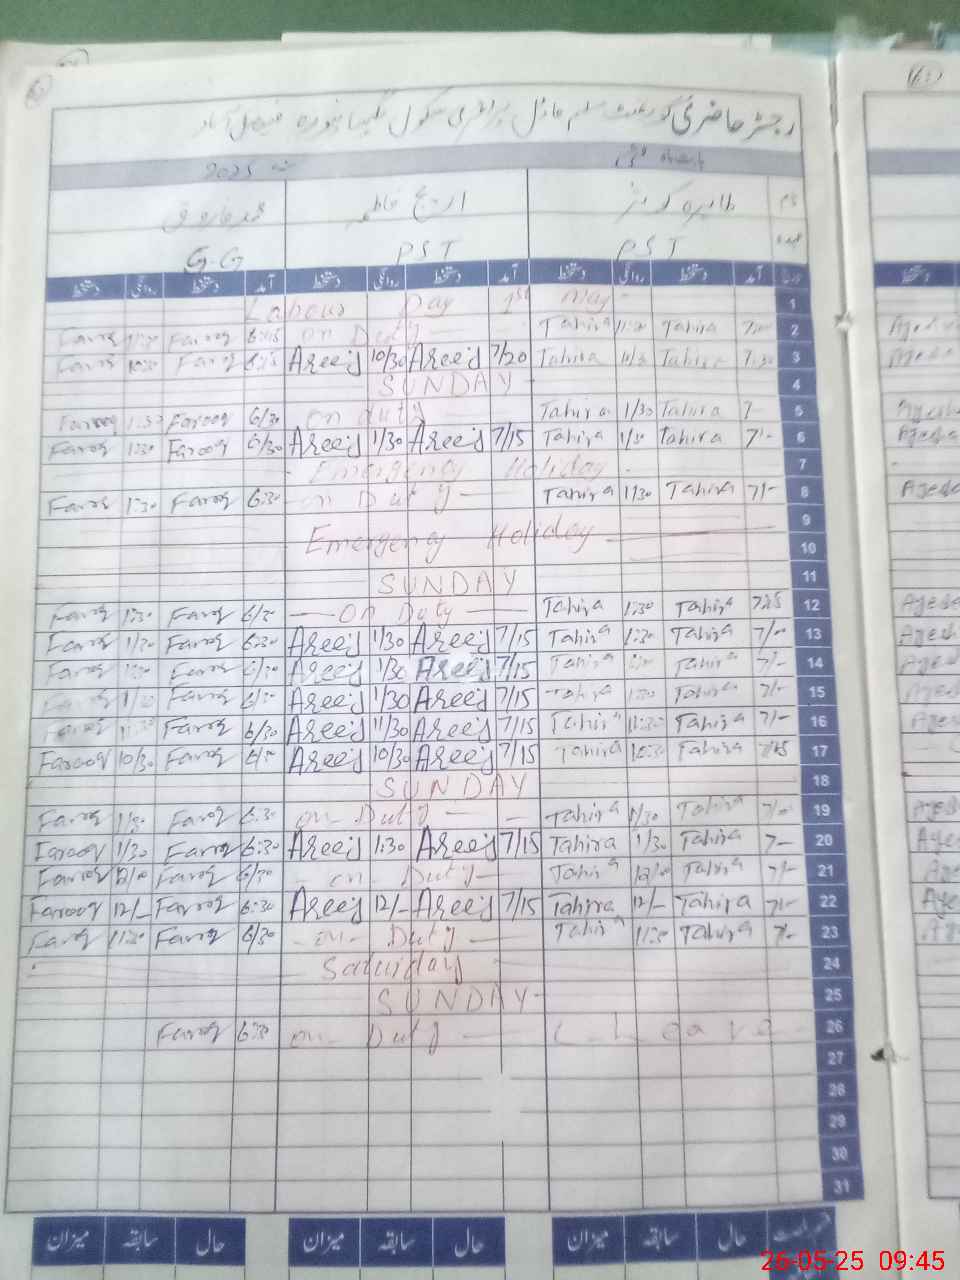 رجسٹر حاضری گورنمنٹ مسلم ماڈل پرائمری سکول نگہبانپورہ فیصل آباد
بابت ماہ مئی سنہ 2025
نام طاہرہ کوثر اریج فاطمہ محمد فاروق
عہدہ PST PST G.G
تاریخ آمد دستخط روانگی دستخط آمد دستخط روانگی دستخط آمد دستخط روانگی دستخط
Labour Day 1st May 1
Farooq Farooq 6:15 on Duty Tahira Tahira 2
Farooq 10:30 Farooq 6:15 Areej 10/30 Areej 7/20 Tahira Tahira 3
SUNDAY 4
Farooq 1:30 Farooq 6/30 on duty Tahira 1/30 Tahira 7- 5
Farooq 1:30 Farooq 6/30 Areej 1/30 Areej 7/15 Tahira 1/30 Tahira 7/- 6
Emergency Holiday 7
Farooq 1:30 Farooq 6:30 on Duty Tahira 1/30 Tahira 7/- 8
9
Emergency Holiday 10
SUNDAY 11
Farooq 1:30 Farooq 6/30 on Duty Tahira 1:30 Tahira 7:15 12
Farooq 1/30 Farooq 6:30 Areej 1/30 Areej 7/15 Tahira 1:30 Tahira 7/- 13
Farooq Farooq 6/30 Areej 1/30 Areej 7/15 Tahira Tahira 7/- 14
Farooq 1/30 Farooq 6/30 Areej 1/30 Areej 7/15 Tahira 1:30 Tahira 7/- 15
Farooq 11:30 Farooq 6/30 Areej 11/30 Areej 7/15 Tahira 11:30 Tahira 7/- 16
Farooq 10/30 Farooq 6/30 Areej 10/30 Areej 7/15 Tahira 10:30 Tahira 7/15 17
SUNDAY 18
Farooq 1/30 Farooq 6:30 on Duty Tahira 1/30 Tahira 7/- 19
Farooq 1/30 Farooq 6:30 Areej 1:30 Areej 7/15 Tahira 1/30 Tahira 7- 20
Farooq 12/00 Farooq 6/30 on Duty Tahira 12/00 Tahira 7/- 21
Farooq 12/- Farooq 6:30 Areej 12/- Areej 7/15 Tahira 12/- Tahira 7/- 22
Farooq 11:30 Farooq 6/30 on Duty Tahira 11:30 Tahira 7/- 23
Saturday 24
SUNDAY 25
Farooq 6:30 on Duty Leave 26
27
28
29
30
31
حال سابقہ میزان حال سابقہ میزان حال سابقہ میزان
26-05-25 09:45